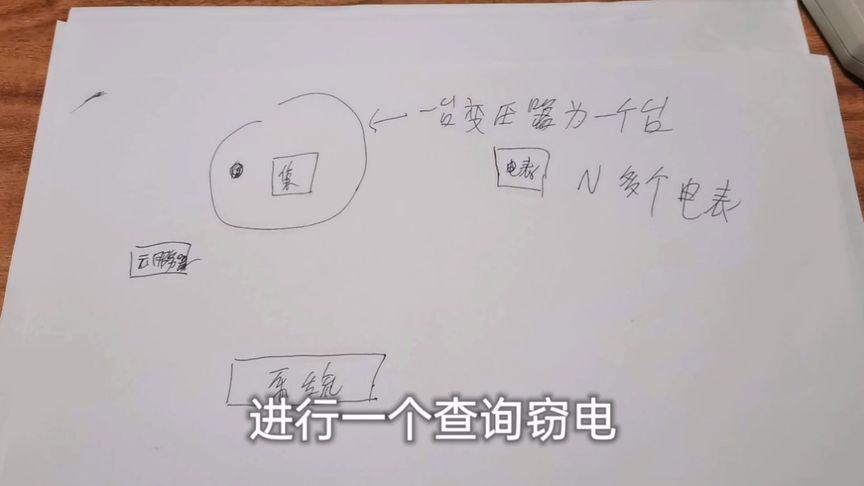 一台变压器为一个台
集
电表
N多个电表
云服务器
系统
进行一个查询窃电